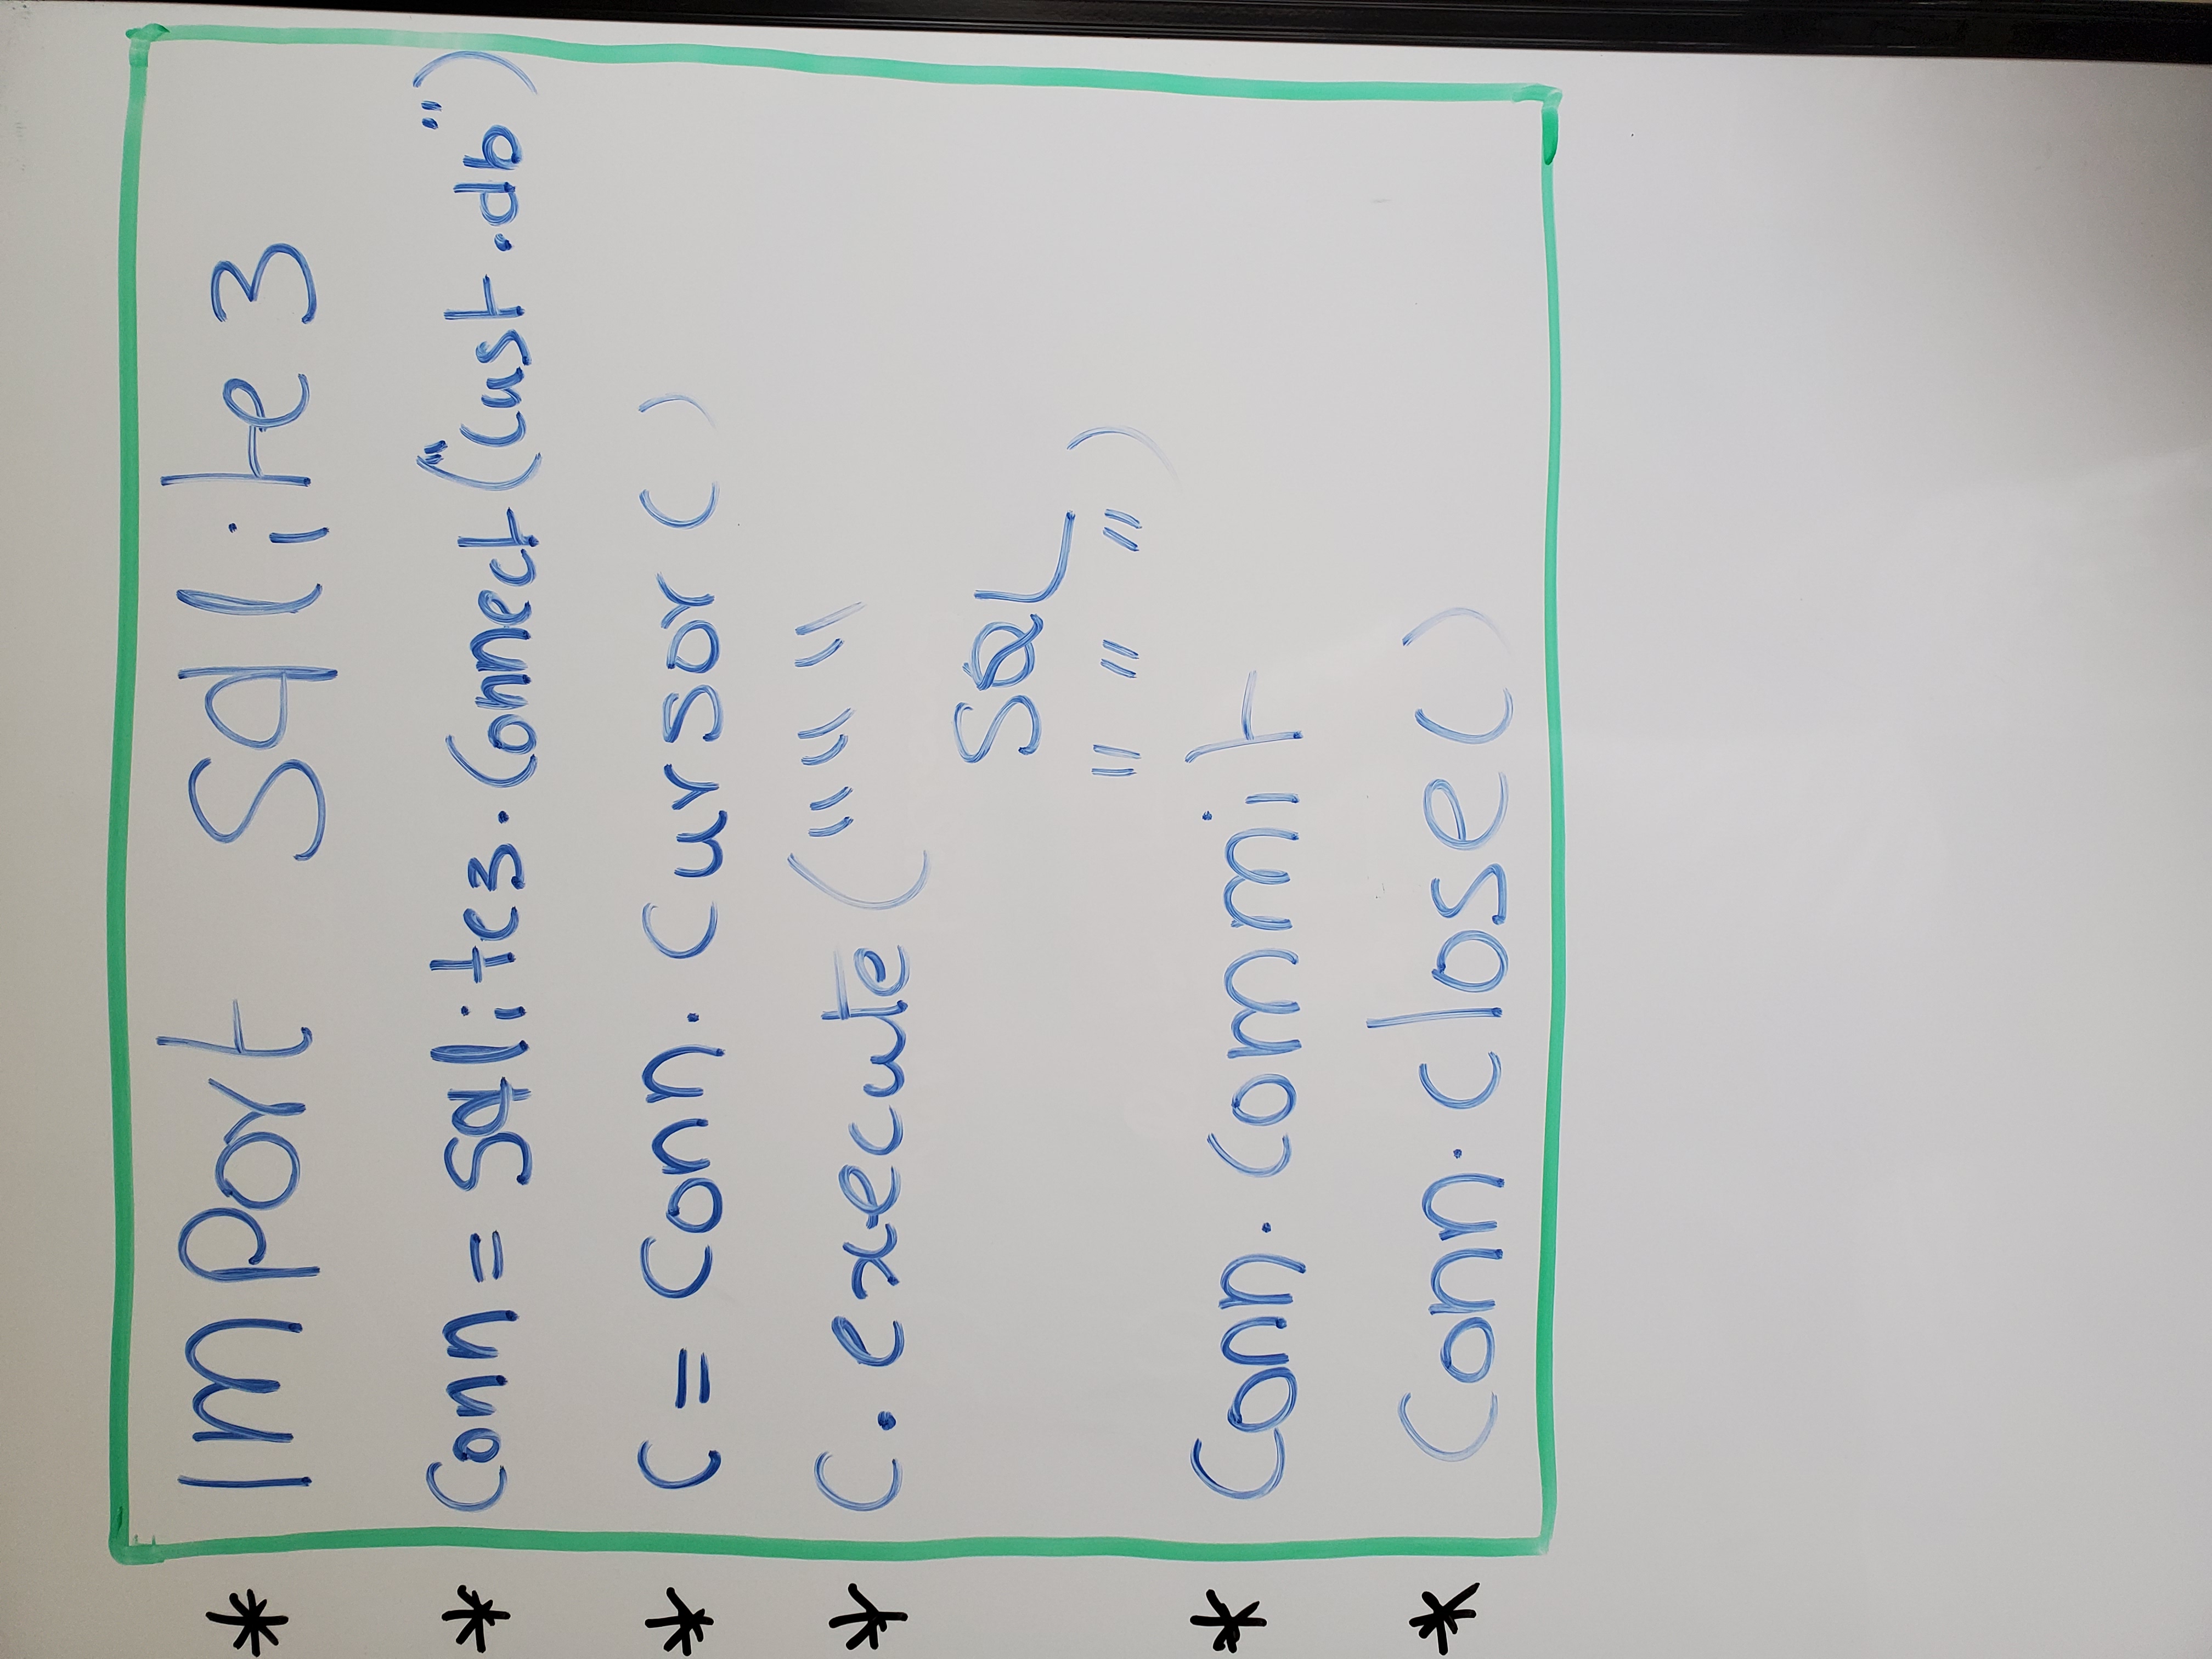 * Import Sqlite3
* Conn = Sqlite3.Connect("Cust.db")
* C = Conn.Cursor()
* C.execute("""
SQL
""")
* Conn.commit
* Conn.close()